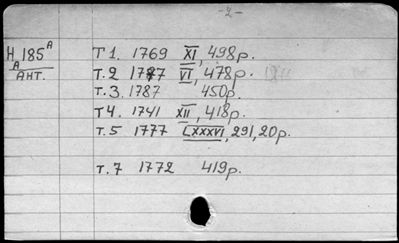 -2-
H 185 A
A
АНТ.
Т 1. 1769 XI, 498 р.
Т. 2 1787 VI, 478 р.
Т. 3. 1787 450 р.
Т 4. 1741 XII, 418 р.
Т. 5 1777 LXXXVI, 291, 20 р.
Т. 7 1772 419 р.